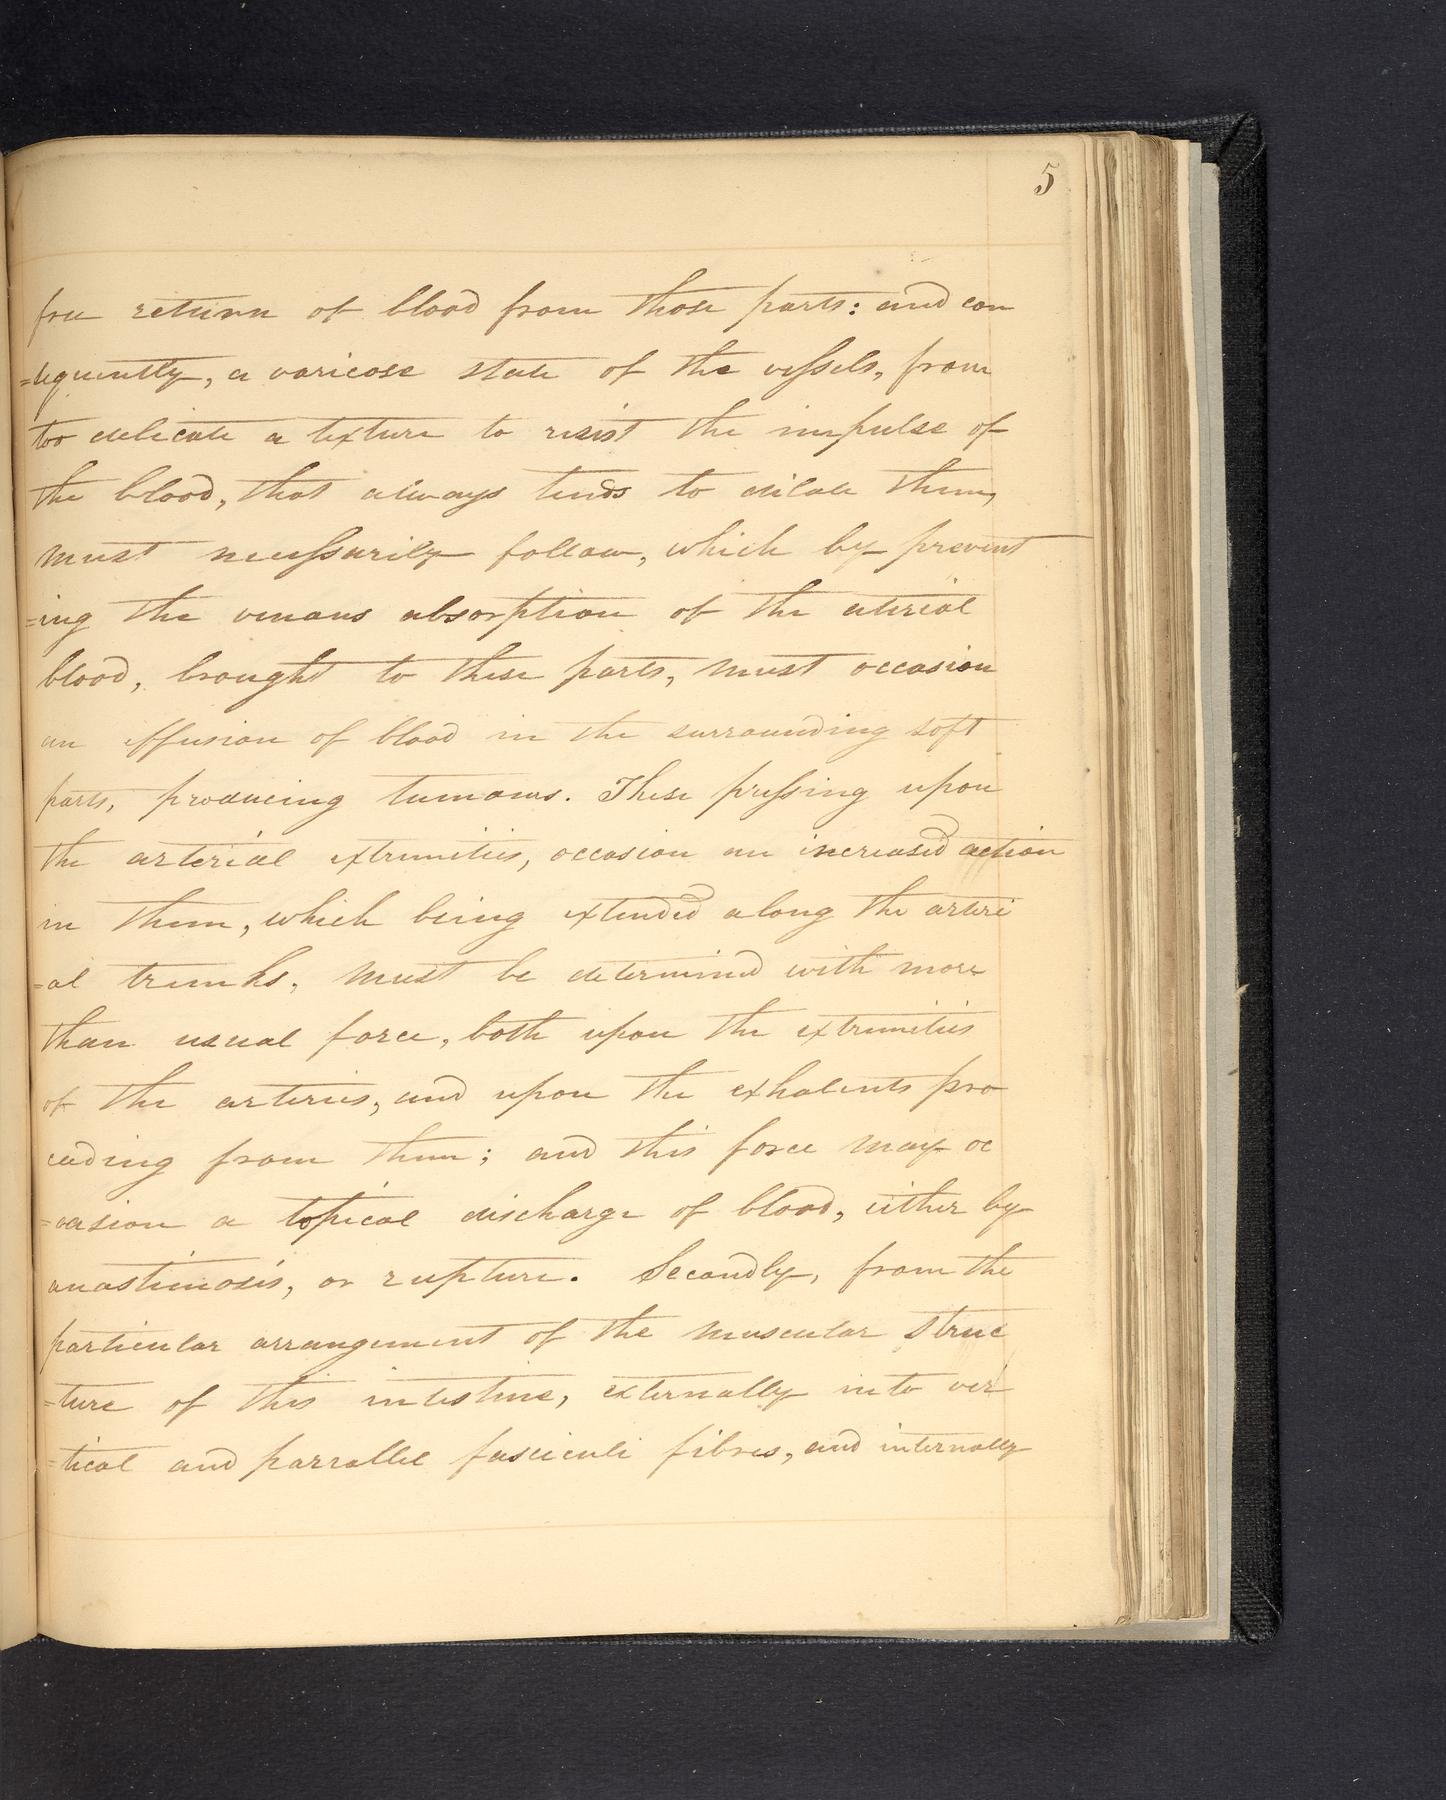 5
free return of blood from those parts: and con
=sequently, a varicose state of the vessels, from
too delicate a texture to resist the impulse of
the blood, that always tends to dilate them,
must necessarily follow, which by prevent
=ing the venous absorption of the aterial
blood, brought to these parts, must occasion
an effusion of blood in the surrounding soft
parts, producing tumours. These pressing upon
the arterial extremities, occasion an increased action
in them, which being extended along the arteri
=al trunks, must be determined with more
than usual force, both upon the extremities
of the arteries, and upon the exhalents pro
ceeding from them; and this force may oc
=casion a topical discharge of blood, either by
anastimosis, or rupture. Secondly, from the
particular arrangement of the muscular struc
=ture of this intestine, externally into ver
=tical and parrallel fasciculi fibres, and internally